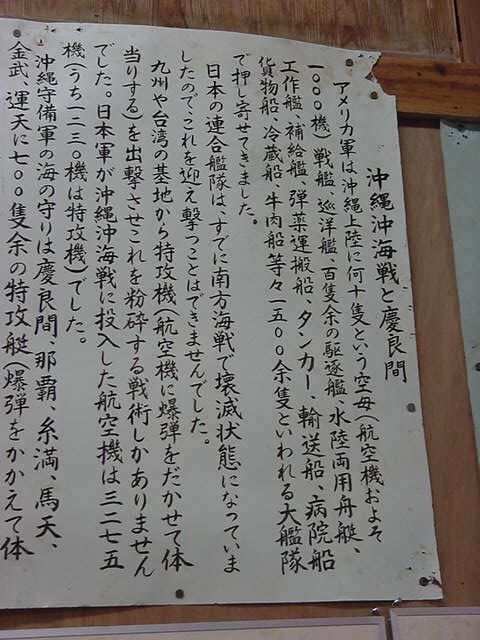 沖縄沖海戦と慶良間
アメリカ軍は沖縄上陸に何十隻という空母(航空機およそ
一〇〇〇機)、戦艦、巡洋艦、百隻余の駆逐艦、水陸両用舟艇、
工作艦、補給艦、弾薬運搬船、タンカー、輸送船、病院船
貨物船、冷蔵船、牛肉船、等々一五〇〇余隻といわれる大艦隊
で押し寄せてきました。
日本の連合艦隊は、すでに南方海戦で壊滅状態になっていま
したので、これを迎え撃つことはできませんでした。
九州や台湾の基地から特攻機(航空機に爆弾をだかせて体
当りする)を出撃させこれを粉砕する戦術しかありません
でした。日本軍が沖縄沖海戦に投入した航空機は三二七五
機(うち一二三〇機は特攻機)でした。
沖縄守備軍の海の守りは慶良間、那覇、糸満、馬天、
金武、運天に七〇〇隻余の特攻艇(爆弾をかかえて体